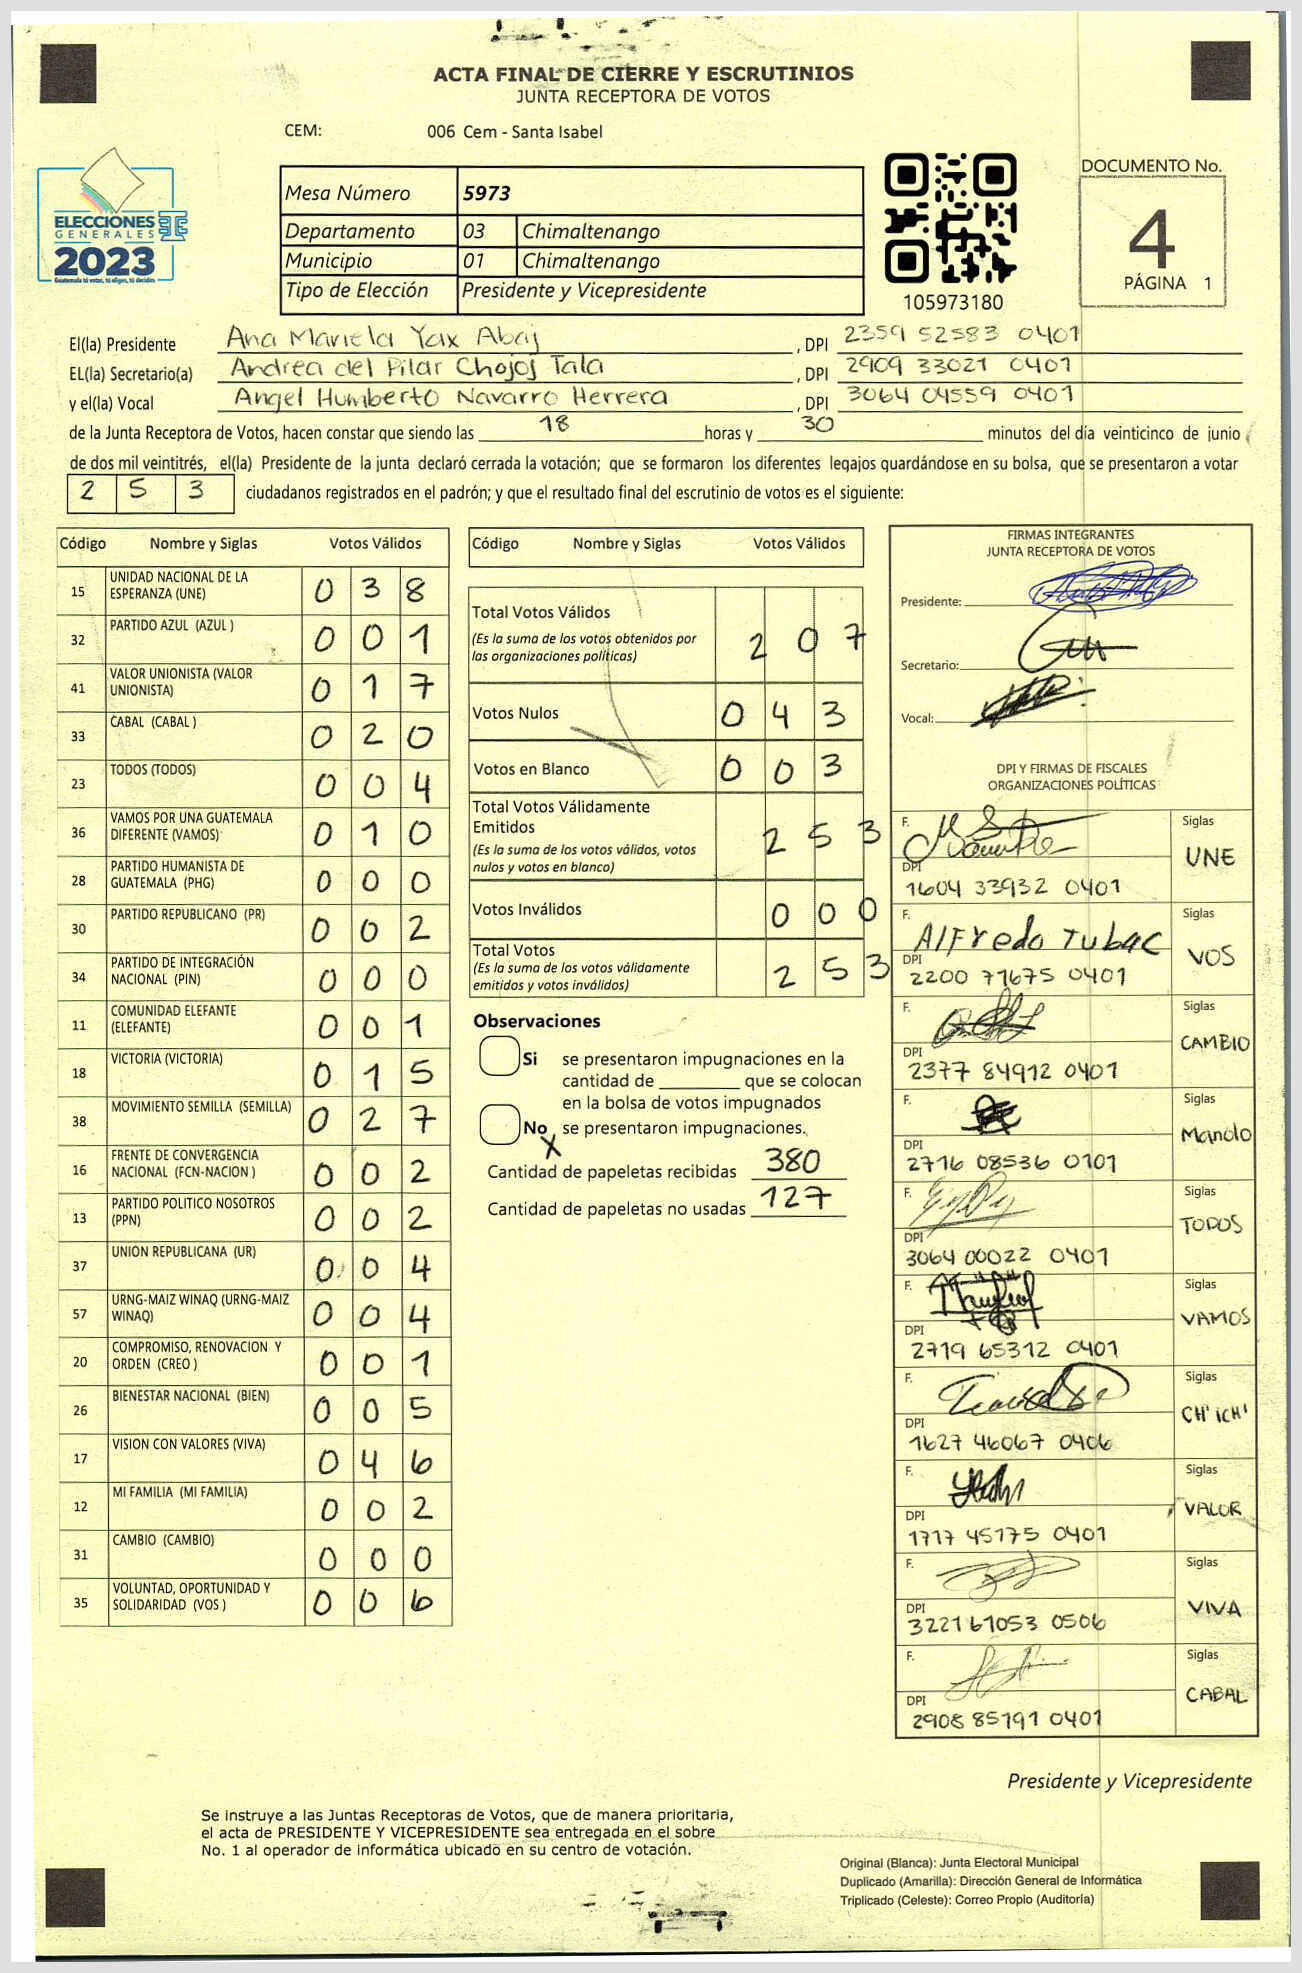 ACTA FINAL DE CIERRE Y ESCRUTINIOS
JUNTA RECEPTORA DE VOTOS
CEM: 006 Cem - Santa Isabel
ELECCIONES
GENERALES
2023
Guatemala tú votas, tú eliges, tú decides
Mesa Número 5973
Departamento 03 Chimaltenango
Municipio 01 Chimaltenango
Tipo de Elección Presidente y Vicepresidente
105973180
DOCUMENTO No.
4
PÁGINA 1
El(la) Presidente Ana Mariela Yax Abaj, DPI 2359 52583 0401
EL(la) Secretario(a) Andrea del Pilar Chojoj Tala, DPI 2909 33021 0401
y el(la) Vocal Angel Humberto Navarro Herrera, DPI 3064 04559 0401
de la Junta Receptora de Votos, hacen constar que siendo las 18 horas y 30 minutos del día veinticinco de junio
de dos mil veintitrés, el(la) Presidente de la junta declaró cerrada la votación; que se formaron los diferentes legajos guardándose en su bolsa, que se presentaron a votar
2 5 3 ciudadanos registrados en el padrón; y que el resultado final del escrutinio de votos es el siguiente:
Código Nombre y Siglas Votos Válidos
15 UNIDAD NACIONAL DE LA ESPERANZA (UNE) 0 3 8
32 PARTIDO AZUL (AZUL ) 0 0 1
41 VALOR UNIONISTA (VALOR UNIONISTA) 0 1 7
33 CABAL (CABAL ) 0 2 0
23 TODOS (TODOS) 0 0 4
36 VAMOS POR UNA GUATEMALA DIFERENTE (VAMOS) 0 1 0
28 PARTIDO HUMANISTA DE GUATEMALA (PHG) 0 0 0
30 PARTIDO REPUBLICANO (PR) 0 0 2
34 PARTIDO DE INTEGRACIÓN NACIONAL (PIN) 0 0 0
11 COMUNIDAD ELEFANTE (ELEFANTE) 0 0 1
18 VICTORIA (VICTORIA) 0 1 5
38 MOVIMIENTO SEMILLA (SEMILLA) 0 2 7
16 FRENTE DE CONVERGENCIA NACIONAL (FCN-NACION ) 0 0 2
13 PARTIDO POLITICO NOSOTROS (PPN) 0 0 2
37 UNION REPUBLICANA (UR) 0 0 4
57 URNG-MAIZ WINAQ (URNG-MAIZ WINAQ) 0 0 4
20 COMPROMISO, RENOVACION Y ORDEN (CREO ) 0 0 1
26 BIENESTAR NACIONAL (BIEN) 0 0 5
17 VISION CON VALORES (VIVA) 0 4 6
12 MI FAMILIA (MI FAMILIA) 0 0 2
31 CAMBIO (CAMBIO) 0 0 0
35 VOLUNTAD, OPORTUNIDAD Y SOLIDARIDAD (VOS ) 0 0 6
Código Nombre y Siglas Votos Válidos
Total Votos Válidos 2 0 7
(Es la suma de los votos obtenidos por
las organizaciones políticas)
Votos Nulos 0 4 3
Votos en Blanco 0 0 3
Total Votos Válidamente
Emitidos 2 5 3
(Es la suma de los votos válidos, votos
nulos y votos en blanco)
Votos Inválidos 0 0 0
Total Votos 2 5 3
(Es la suma de los votos válidamente
emitidos y votos inválidos)
Observaciones
Si se presentaron impugnaciones en la
cantidad de ________ que se colocan
en la bolsa de votos impugnados
No se presentaron impugnaciones.
X
Cantidad de papeletas recibidas 380
Cantidad de papeletas no usadas 127
FIRMAS INTEGRANTES
JUNTA RECEPTORA DE VOTOS
Presidente:
Secretario:
Vocal:
DPI Y FIRMAS DE FISCALES
ORGANIZACIONES POLÍTICAS
F. Siglas
UNE
DPI
1604 33932 0401
F. Siglas
Alfredo Tubac
VOS
DPI
2200 71675 0401
F. Siglas
CAMBIO
DPI
2377 84912 0401
F. Siglas
Manolo
DPI
2716 08536 0101
F. Siglas
TODOS
DPI
3064 00022 0401
F. Siglas
VAMOS
DPI
2719 65312 0401
F. Siglas
CH' ICH'
DPI
1627 46067 0406
F. Siglas
VALOR
DPI
1717 45175 0401
F. Siglas
VIVA
DPI
3221 61053 0506
F. Siglas
CABAL
DPI
2908 85191 0401
Presidente y Vicepresidente
Se instruye a las Juntas Receptoras de Votos, que de manera prioritaria,
el acta de PRESIDENTE Y VICEPRESIDENTE sea entregada en el sobre
No. 1 al operador de informática ubicado en su centro de votación.
Original (Blanca): Junta Electoral Municipal
Duplicado (Amarilla): Dirección General de Informática
Triplicado (Celeste): Correo Propio (Auditoría)